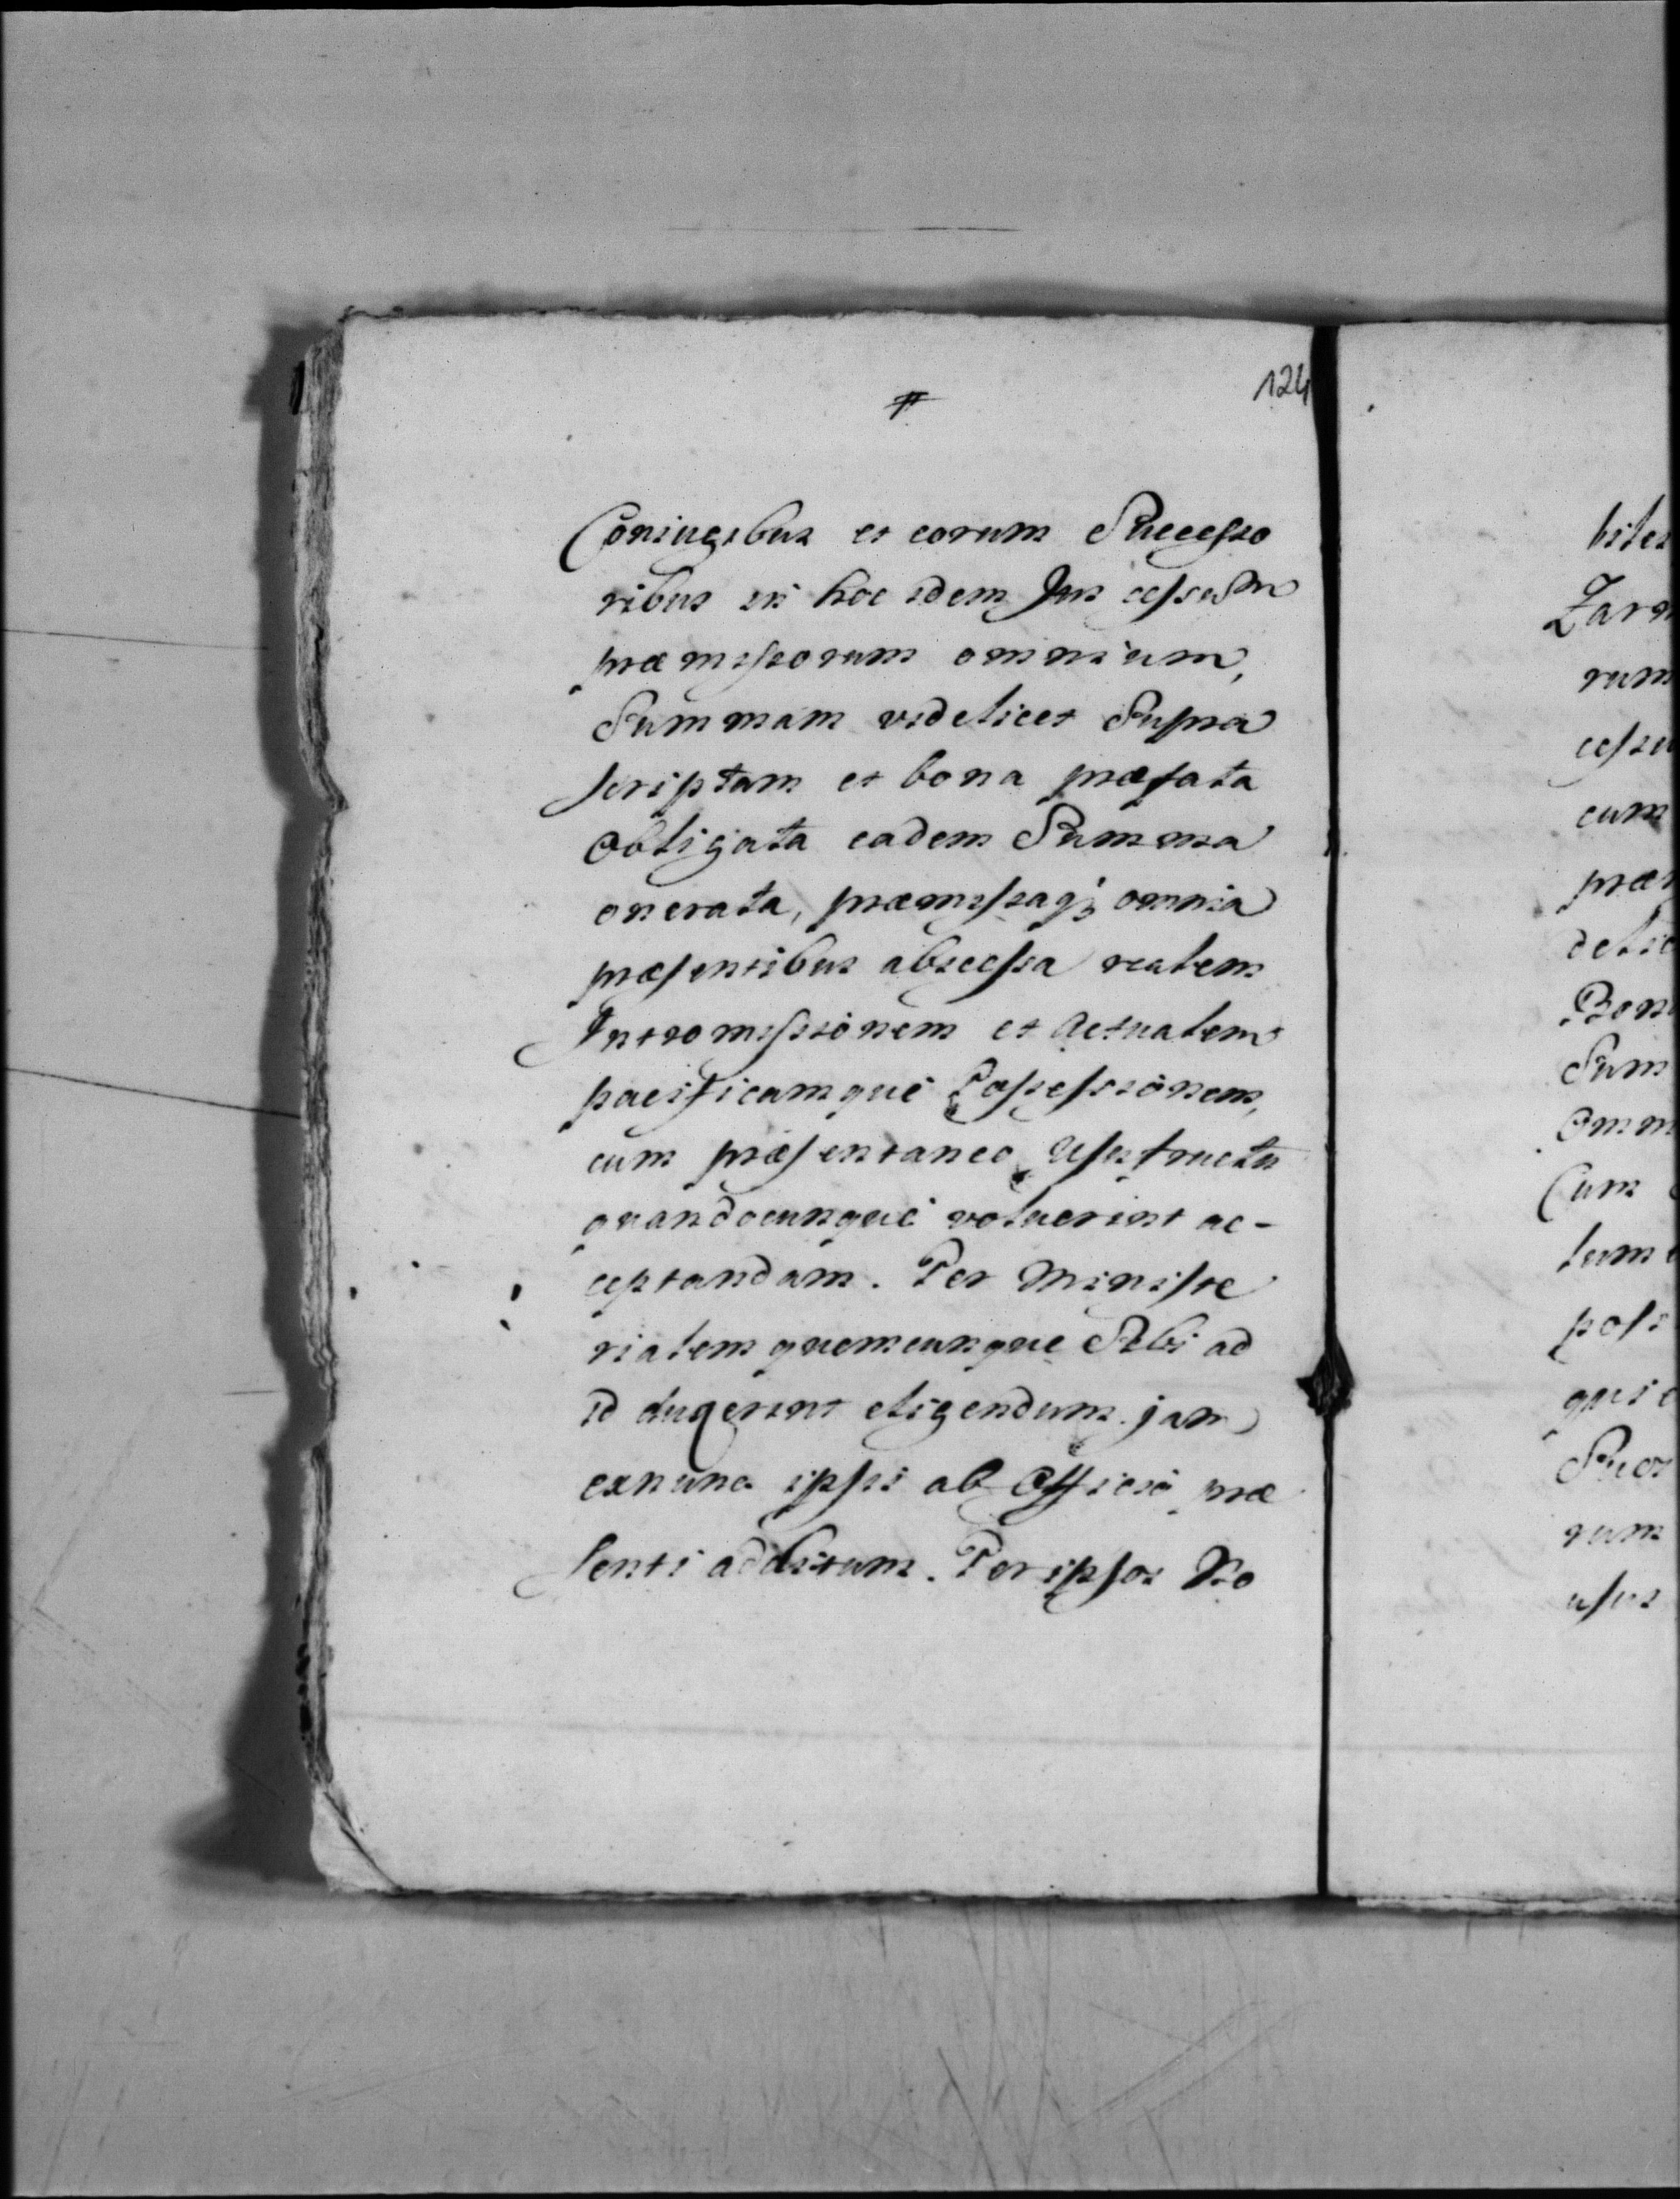 124
Coniugibus et eorum Succeſso
ribus in hoc idem Jus ceſsum
præmiſsorum omnium,
Summam videlicet Supra
ſcriptam et bona præfata
obligata eadem Summa
onerata, præmiſsaq; omnia
præſentibus absceſsa realem
Intromiſsionem et Actualem
pacificamque Poſseſsionem,
cum præſentaneo Uſufructu
quandocunque voluerint ac-
ceptandam. Per Miniſte
rialem quemcunque Sibi ad
id duxerint eligendum jam
exnunc ipſis ab Officio præ
ſenti additum. Per ipſos No
Bon
Sum
Omn
Cum
rum
cum